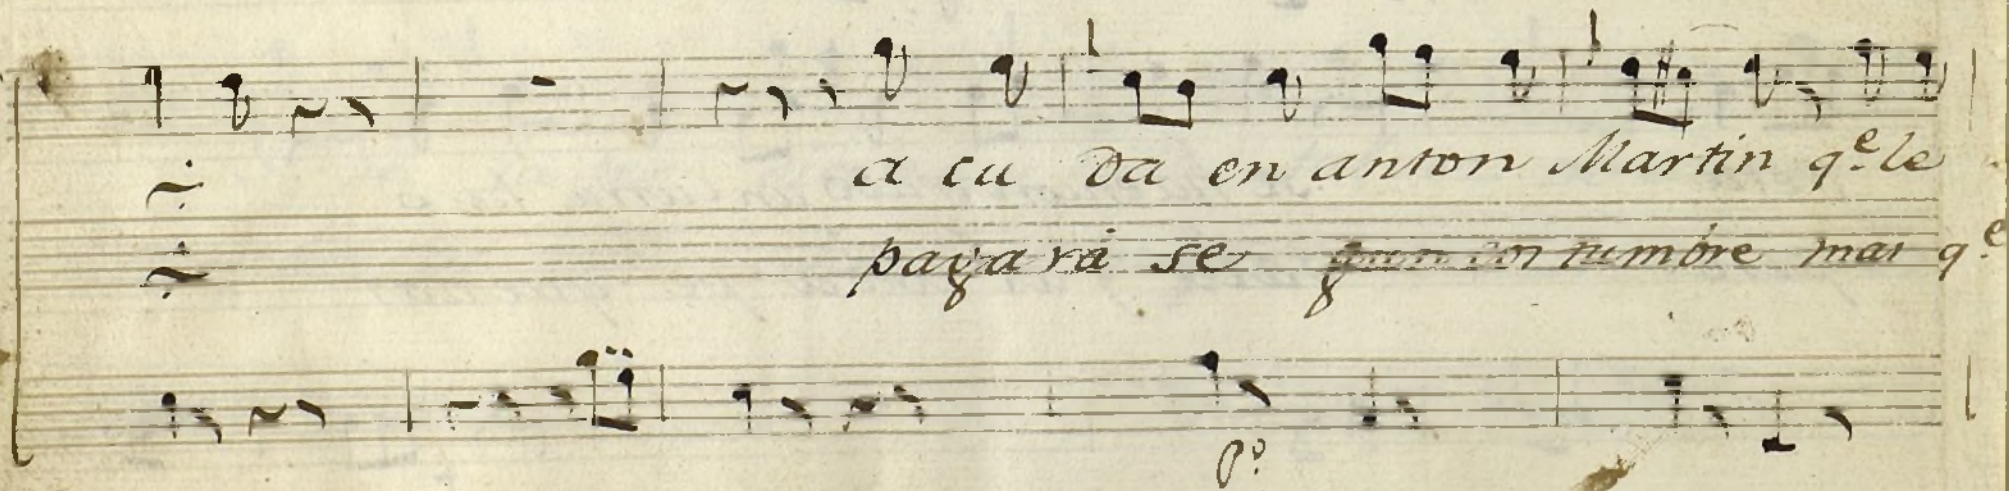 a cu da en anton Martin qe. le
pagará se gun cos tumbre mas qe.
po.